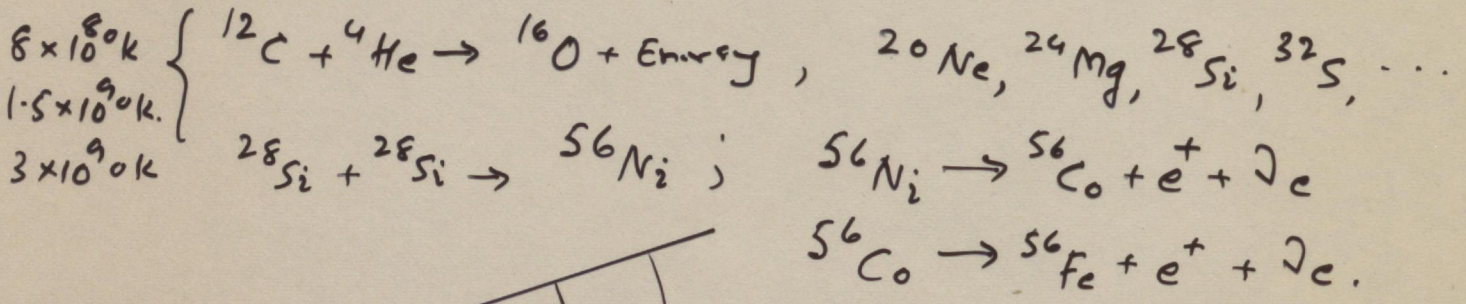 8×10⁸ °k { ¹²C + ⁴He → ¹⁶O + Energy , ²⁰Ne, ²⁴Mg, ²⁸Si, ³²S, ....
1.5×10⁹ °k.
3×10⁹ °k ²⁸Si + ²⁸Si → ⁵⁶Ni ; ⁵⁶Ni → ⁵⁶Co + e⁺ + νe
⁵⁶Co → ⁵⁶Fe + e⁺ + νe.